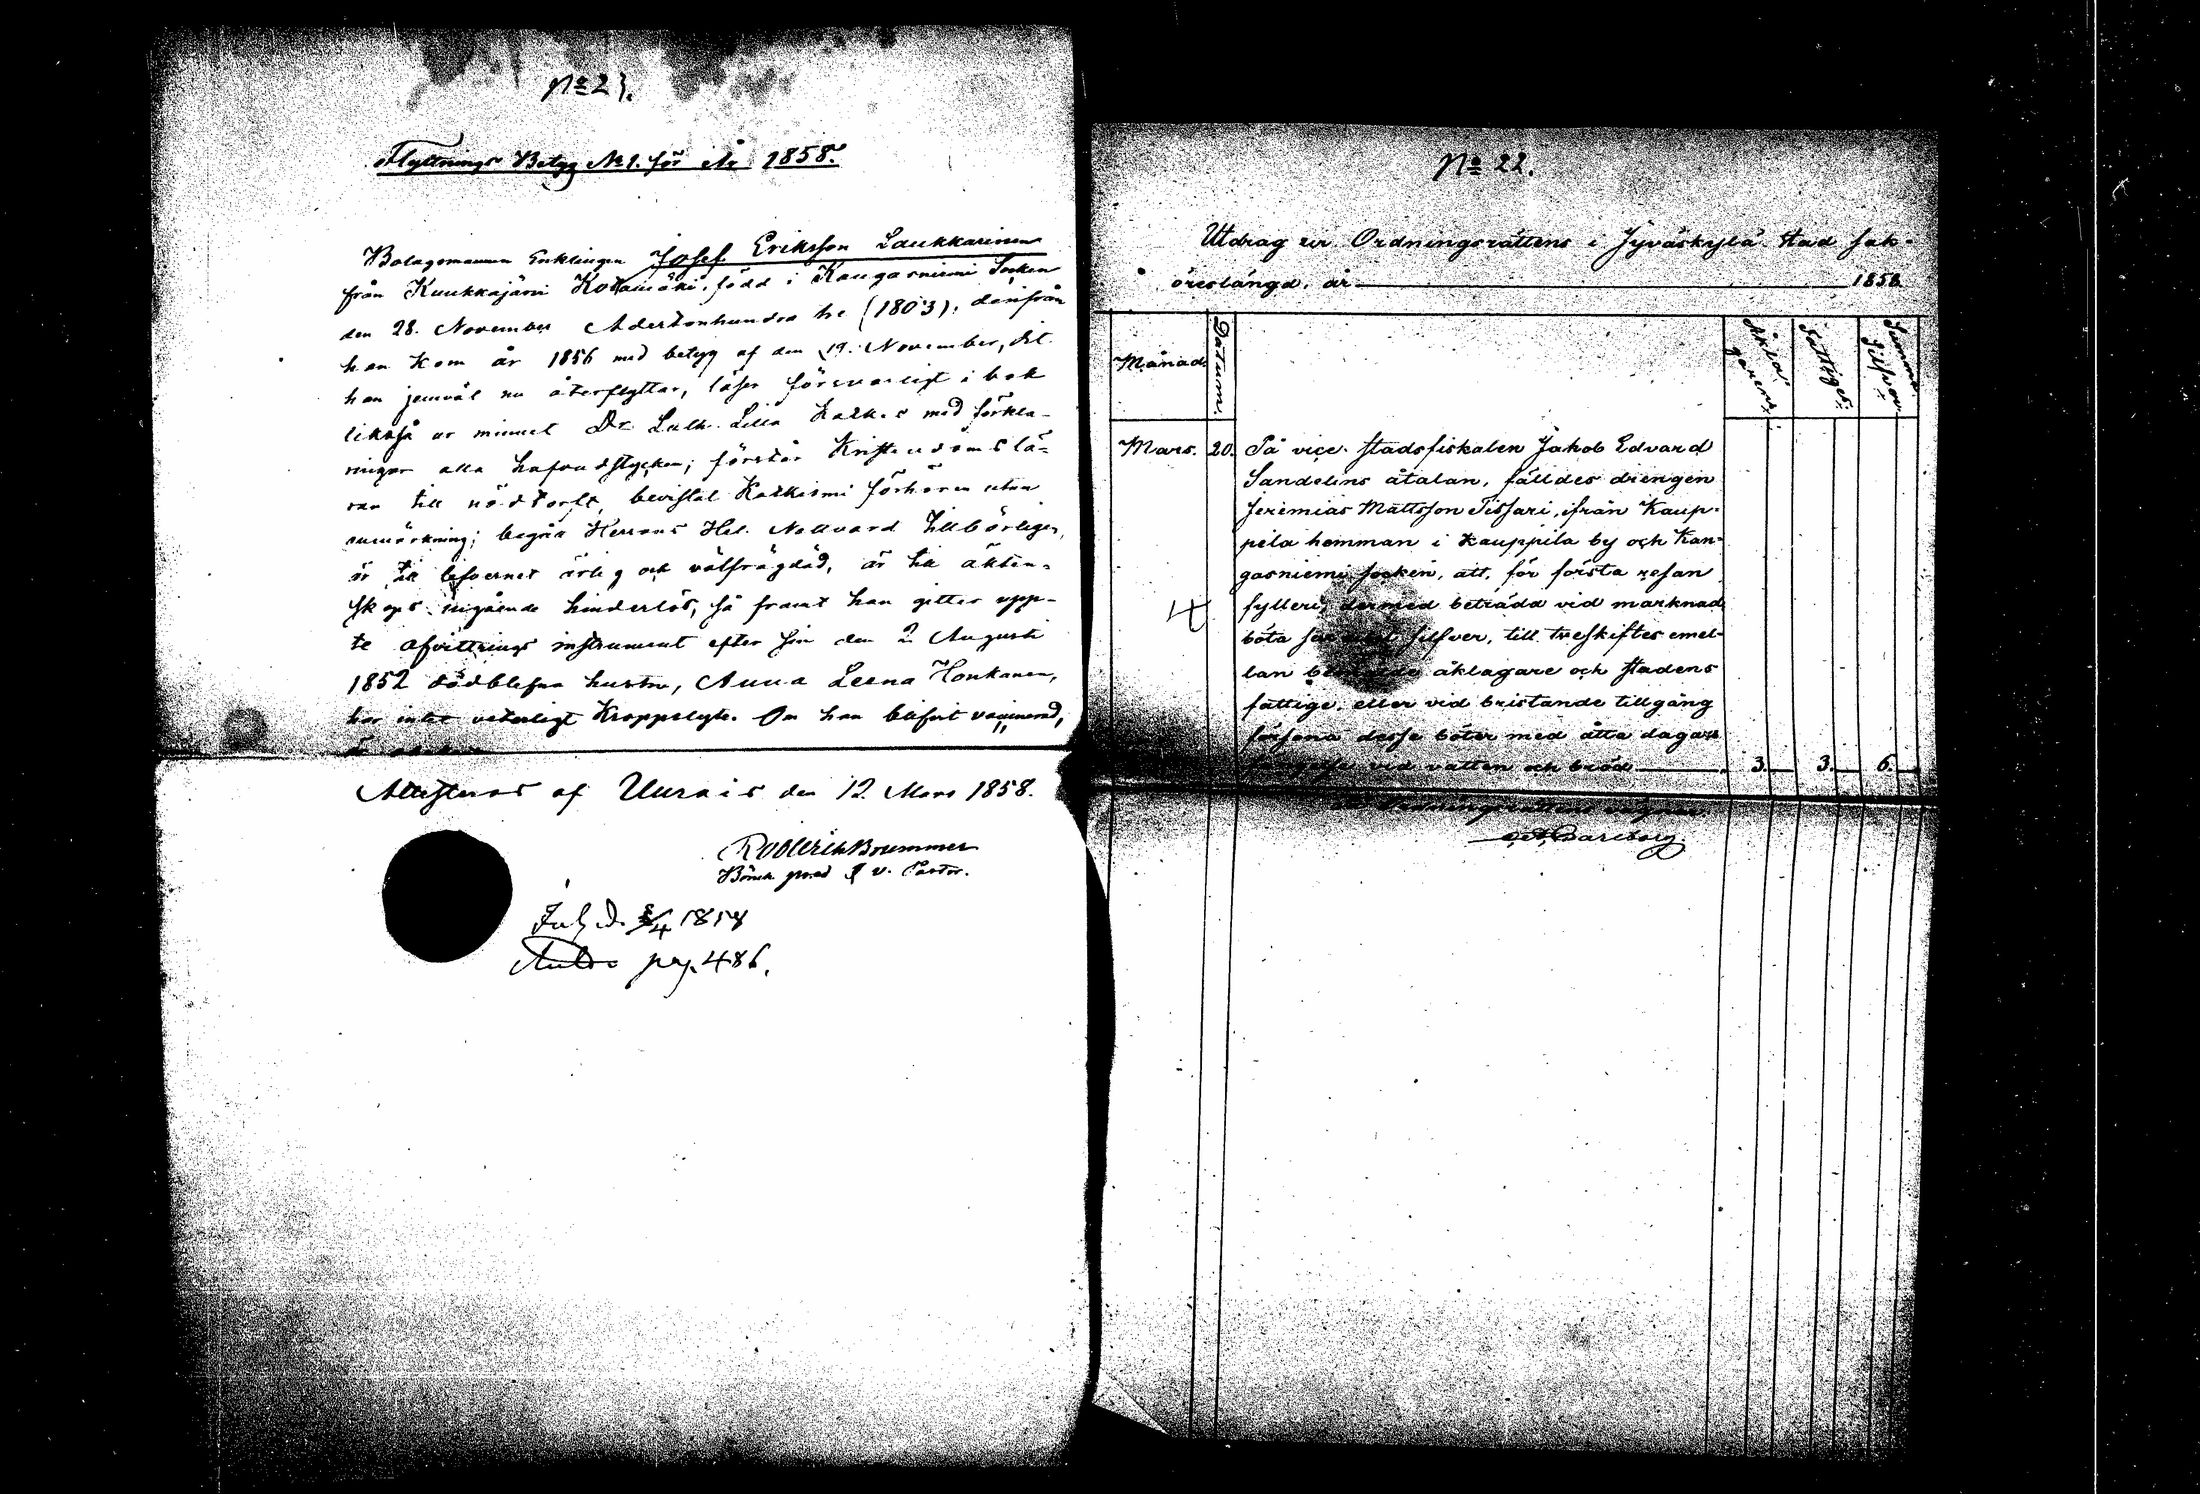 No 23.
Flyttnings Betyg No 1. för År 1858.
Bolagsmannen Enklingen Josef Eriksson Laukkarinen
från Kuukkajärvi Kotamäki, född i Kangasniemi Socken
den 28. November Adertonhundra tre (1803), derifrån
han kom år 1856 med betyg af den 19. November, dit
han jemväl nu återflyttar, läser försvarligt i bok
likaså ur minnet Dr Luth. Lilla Katk.s med förkla-
ringar alla hufvudstycken; förstår Kristendomslä-
ran till nödtorft, bevistat Katkismi förhören utan
anmärkning; begår Herrans Hel. Nattvard tillbörligen,
är till lefvernet ärlig och välfrägdad, är till äkten-
skaps ingående hinderlös, så framt han gitter upp-
te afvittrings instrument efter sin den 2 Augusti
1852 dödblefna hustru, Anna Leena Honkanen,
har intet veterligt Kroppslyte. Om han blifvit vaccinerad,
är
Attesteras af Uurais den 12. Mars 1858.
Roderik Brummer
v. Pastor.
1858
pag. 486.
No 22.
Utdrag ur Ordningsrättens i Jyväskylä stad sak-
öreslängd, år 1858
Månad.
Datum.
Åkla-
garens.
Fattiges.
Summa
Silfver.
Mars. 20. På vice stadsfiskalen Jakob Edvard
Sandelins åtalan, fälldes drengen
Jeremias Mattsson Tissari, från Kaup-
pila hemman i Kauppila by och Kan-
gasniemi socken, att, för första resan
fylleri, dermed beträdd vid marknad
4
böta silfver, till treskiftes emel-
lan åklagare och stadens
fattige, eller vid bristande tillgång
försona desse böter med åtta dagars
fängelse vid vatten och bröd 3. 3. 6.
Ordningsrättens vägnar